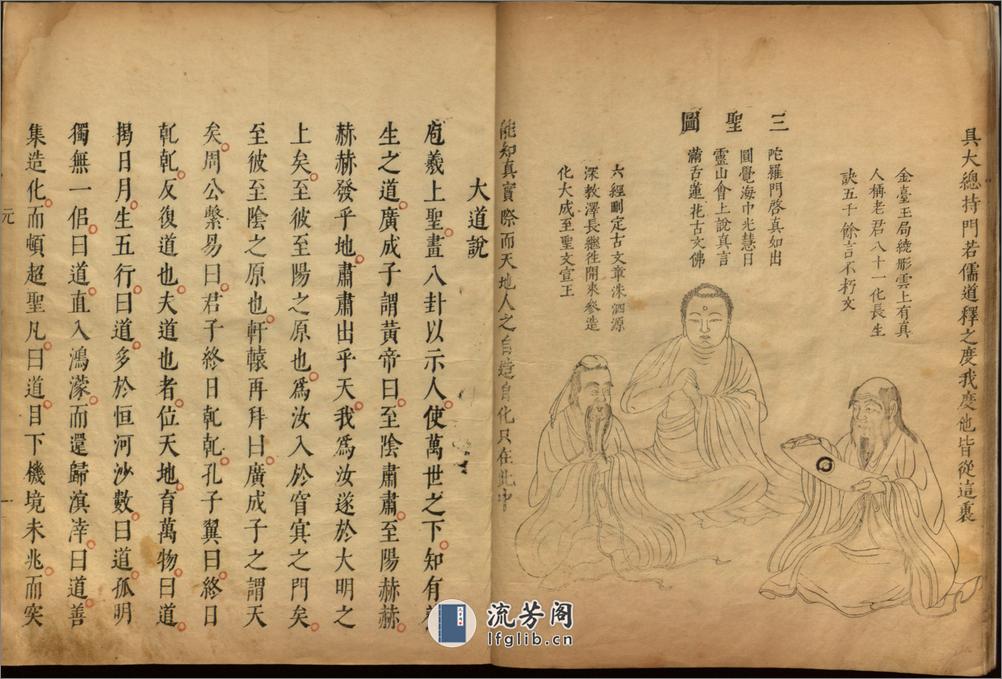 具大總持門若儒道釋之度我度他皆從這裏
三聖圖
金臺玉局繞彤雲上有真
人稱老君八十一化長生
訣五千餘言不朽文
陀羅門啓真如出
圓覺海中光慧日
靈山會上說真言
滿舌蓮花古文佛
六經刪定古文章洙泗源
深教澤長繼徃開來參造
化大成至聖文宣王
能知真實際而天地人之自造自化只在此中
大道說
庖羲上聖畫八卦以示人使萬世之下知有
生之道廣成子謂黃帝曰至陰肅肅至陽赫赫
赫赫發乎地肅肅出乎天我爲汝遂於大明之
上矣至彼至陽之原也爲汝入於窅㝠之門矣
至彼至陰之原也軒轅再拜曰廣成子之謂天
矣周公繫易曰君子終日乹乹孔子翼曰終日
乹乹反復道也夫道也者位天地育萬物曰道
揭日月生五行曰道多於恒河沙數曰道孤明
獨無一侶曰道直入鴻濛而還歸滇涬曰道善
集造化而頓超聖凡曰道目下機境未兆而突
元
一
流芳阁
lfglib.cn